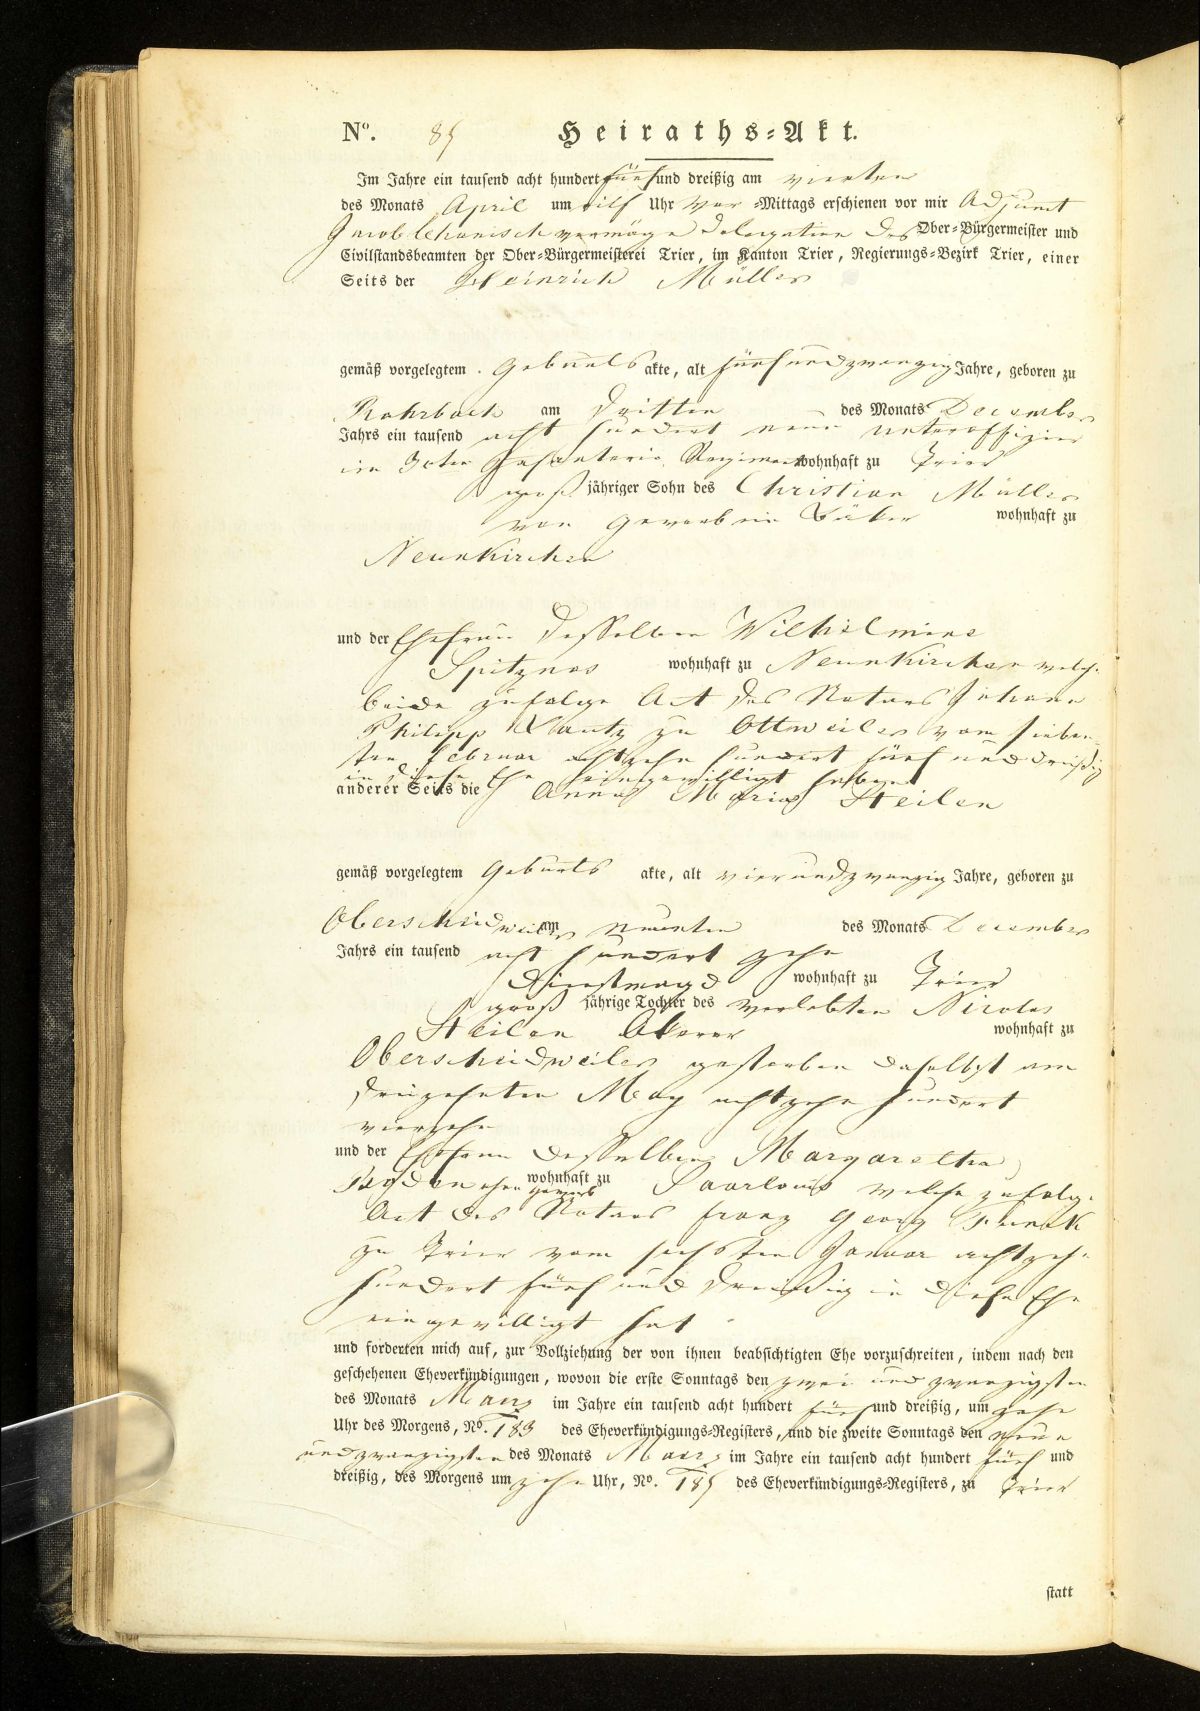 No. 85 Heiraths-Akt.
Im Jahre ein tausend acht hundert fünf und dreißig am vierten
des Monats April um eilf Uhr Vor-Mittags erschienen vor mir Adjunct
Jacob vermöge Delegation des Ober-Bürgermeister und
Civilstandsbeamten der Ober-Bürgermeisterei Trier, im Kanton Trier, Regierungs-Bezirk Trier, einer
Seits der Heinrich Müller
gemäß vorgelegtem Geburtsakte, alt fünfundzwanzig Jahre, geboren zu
Rohrbach am dritten des Monats December
Jahrs ein tausend acht hundert neun Unteroffizier
im 30ten Infanterie Regiment wohnhaft zu Trier
großjähriger Sohn des Christian Müller
von Gewerb ein Bäker wohnhaft zu
Neunkirchen
und der Ehefrau desselben Wilhelmine
Spitznas wohnhaft zu Neunkirchen welche
beide zufolge Act des Notars Johann
Philipp Lautz zu Ottweiler vom sieben-
ten Februar achtzehn hundert fünf und dreißig
in diese Ehe eingewilligt haben
anderer Seits die Anna Maria Heilen
gemäß vorgelegtem Geburts akte, alt vierundzwanzig Jahre, geboren zu
Oberscheidweiler am neunten des Monats December
Jahrs ein tausend acht hundert zehn
Dienstmagd wohnhaft zu Trier
großjährige Tochter des verlebten Nicolas
Heilen Akerer wohnhaft zu
Oberscheidweiler gestorben daselbst am
dreizehnten May achtzehn hundert
vierzehn
und der Ehefrau desselben Margaretha
Boden ohne Gewerb wohnhaft zu Saarlouis welche zufolge
Act des Notars Franz Georg Funck
zu Trier vom sechsten Januar achtzehn
hundert fünf und dreißig in diese Ehe
eingewilligt hat
und forderten mich auf, zur Vollziehung der von ihnen beabsichtigten Ehe vorzuschreiten, indem nach den
geschehenen Eheverkündigungen, wovon die erste Sonntags den zwei und zwanzigsten
des Monats März im Jahre ein tausend acht hundert fünf und dreißig, um zehn
Uhr des Morgens, No. 183 des Eheverkündigungs-Registers, und die zweite Sonntags den neun
undzwanzigsten des Monats März im Jahre ein tausend acht hundert fünf und
dreißig, des Morgens um zehn Uhr, No. 185 des Eheverkündigungs-Registers, zu Trier
statt